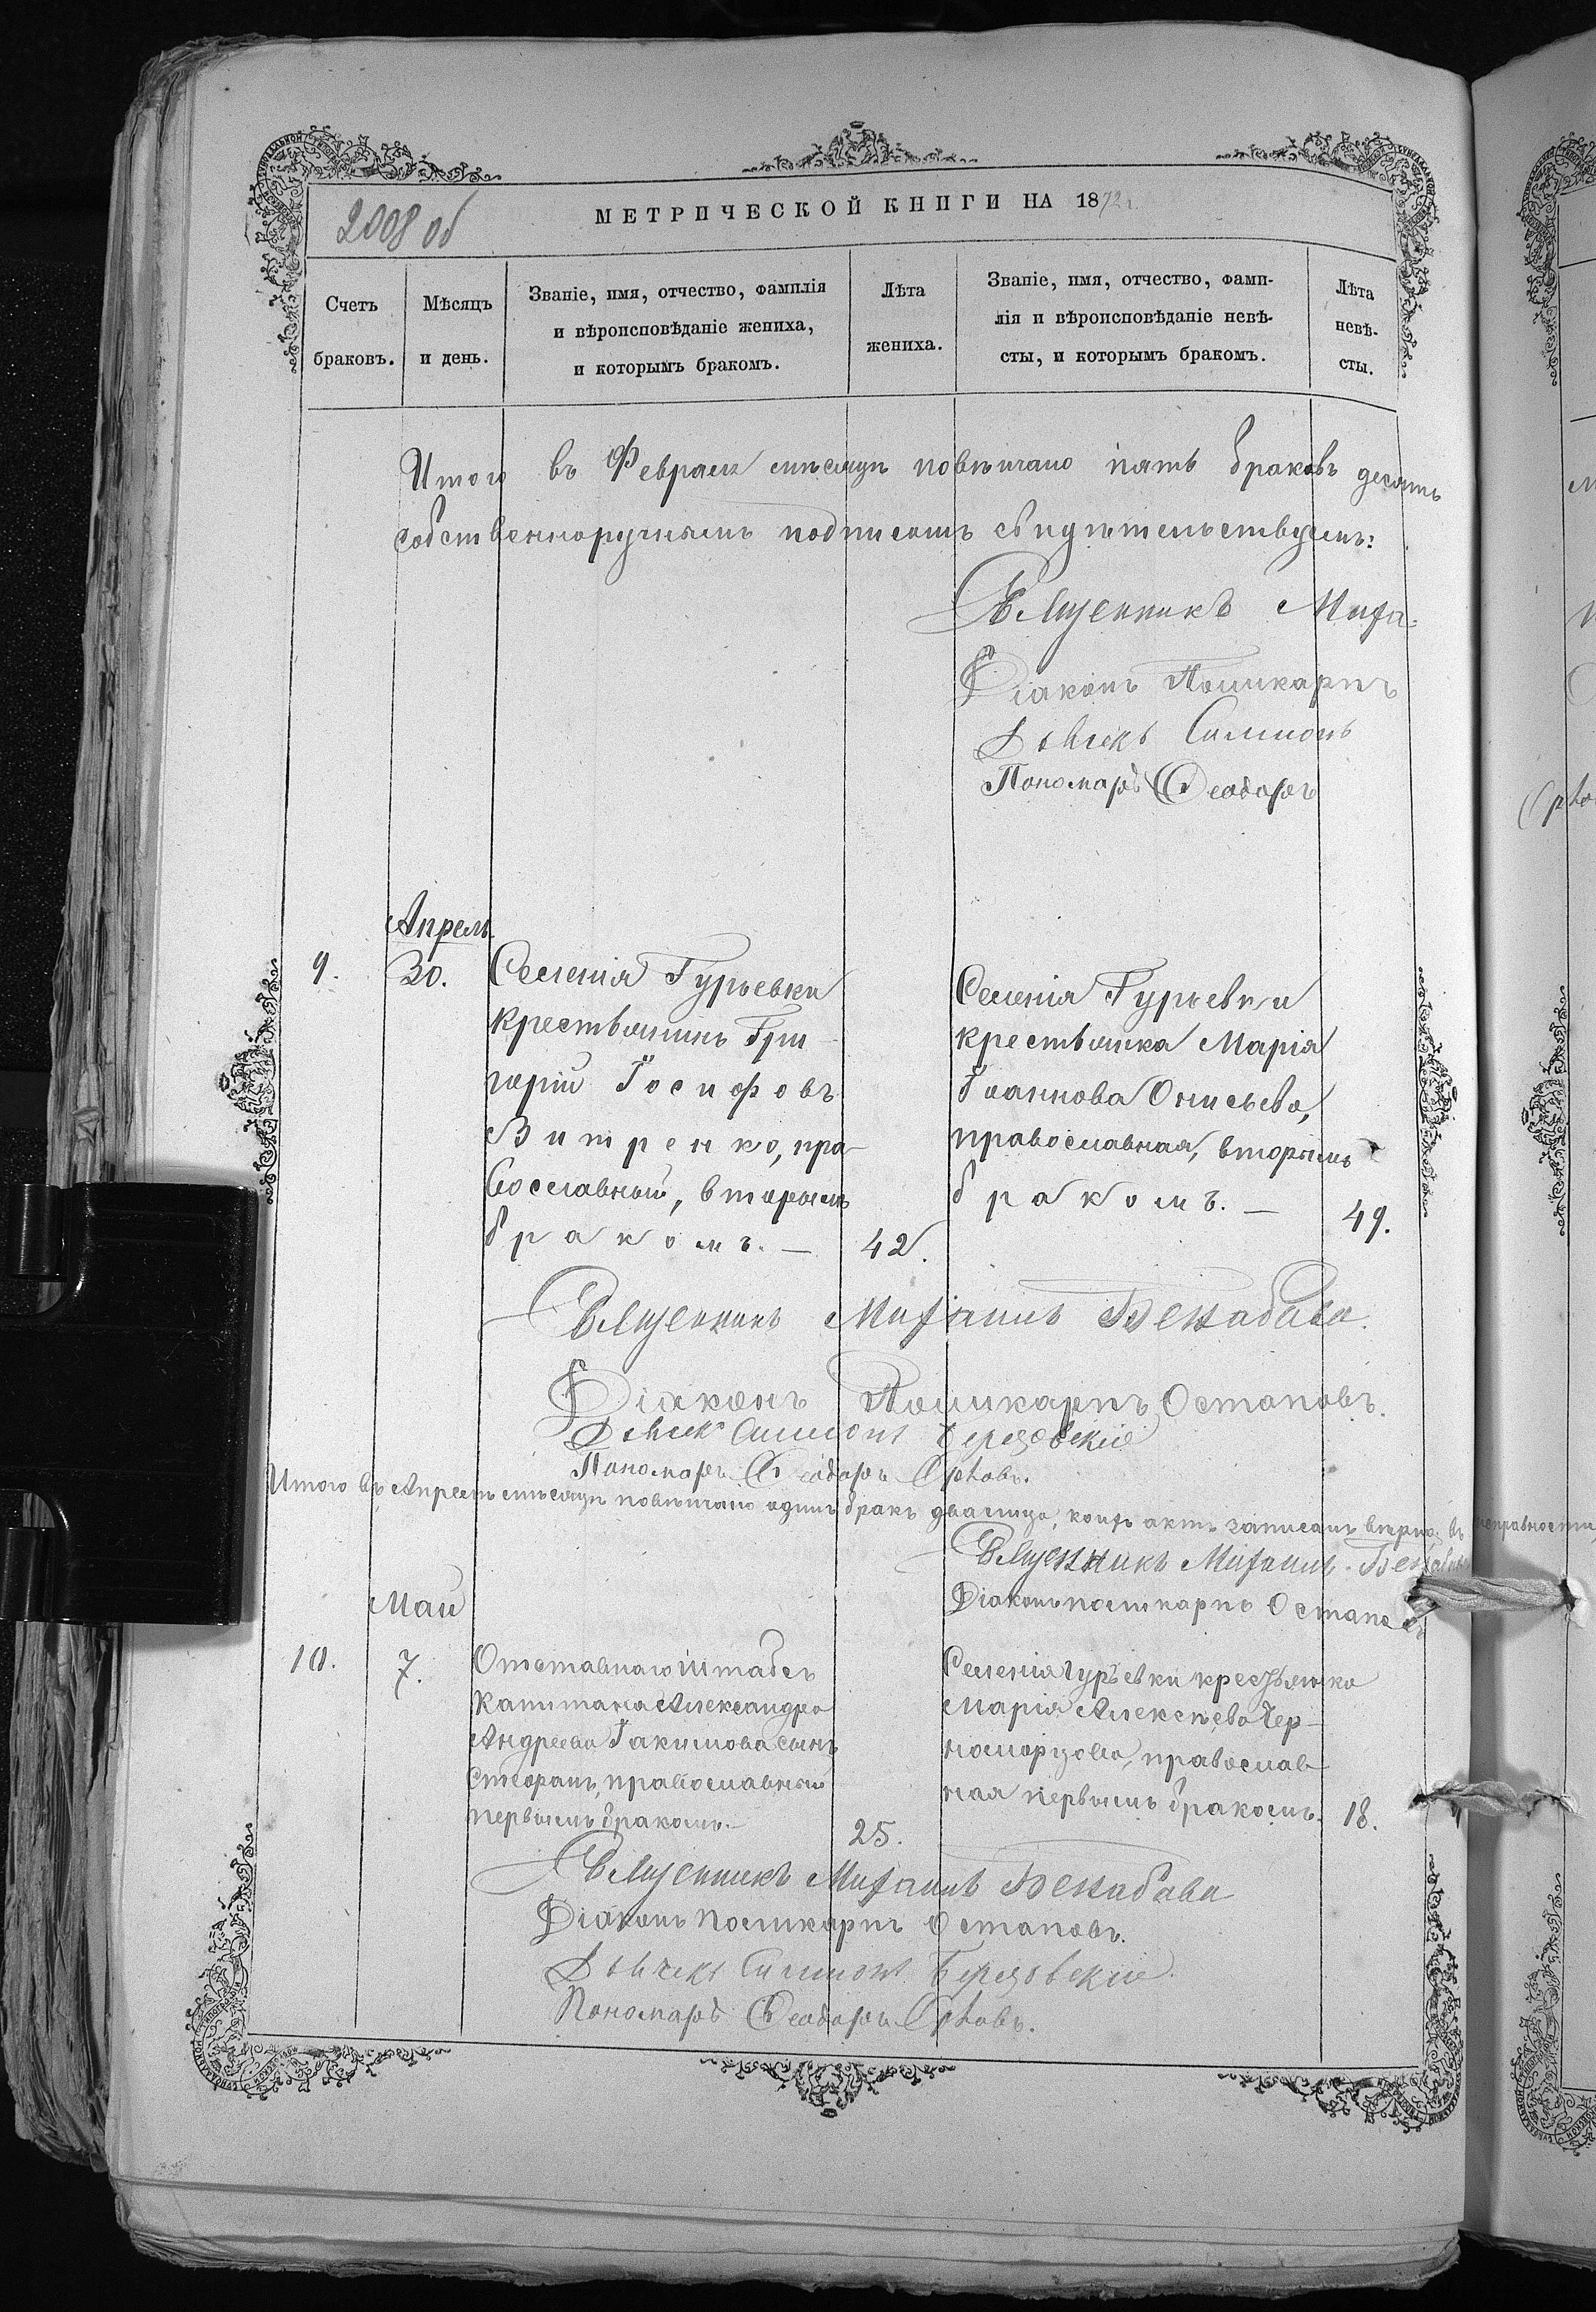 2008 об
МЕТРИЧЕСКОЙ КНИГИ НА 1872 г.
Счетъ браковъ.
Мѣсяцъ и день.
Званіе, имя, отчество, фамилія
и вѣроисповѣданіе жениха,
и которымъ бракомъ.
Лѣта
жениха.
Званіе, имя, отчество, фами-
лія и вѣроисповѣданіе невѣ-
сты, и которымъ бракомъ.
Лѣта
невѣ-
сты.
Итого въ Февралѣ мѣсяцѣ повѣнчано пять браковъ десять
собственноручнымъ подписомъ свидѣтельствуемъ:
Священникъ Миха-
Діаконъ Поликарпъ
Дьячекъ Симионъ
Пономарь Ѳеодоръ
Апрель.
9.
30.
Селенія Гурьевки
крестьянинъ Гри-
горій Іосифовъ
Витренко, пра-
вославный, вторымъ
бракомъ. —
42.
Селенія Гурьевки
крестьянка Марія
Іоаннова Онисьева,
православная, вторымъ
бракомъ. —
49.
Священникъ Михаилъ
Діаконъ Поликарпъ Остаповъ.
Дьячекъ Симионъ Березовскій
Пономарь Ѳеодоръ Орловъ.
Итого въ Апрелѣ мѣсяцѣ повѣнчано одинъ бракъ два лица, коихъ актъ записанъ вѣрно, въ исправности
Священникъ Михаилъ
Діаконъ Поликарпъ Остаповъ
Маи
10.
7.
Отставнаго Штабсъ
Капитана Александра
Андреева Іакимова сынъ
Стефанъ, православный
первымъ бракомъ.—
25.
Селенія Гурьевки крестьянка
Марія Алексѣева Чер-
номорцова, православ-
ная первымъ бракомъ.
18.
Священникъ Михаилъ
Діаконъ Поликарпъ Остаповъ.
Дьячекъ Симионъ Березовскій.
Пономарь Ѳеодоръ Орловъ.